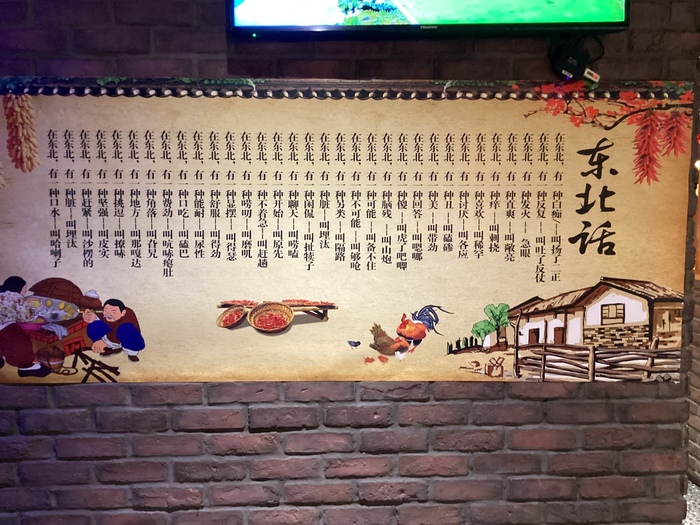 东北话
在东北，有一种白痴—叫扬了二正
在东北，有一种反复—叫吐了反仗
在东北，有一种发火—急眼
在东北，有一种直爽—叫敞亮
在东北，有一种痒—叫刺挠
在东北，有一种喜欢—叫稀罕
在东北，有一种讨厌—叫各应
在东北，有一种丑—叫磕碜
在东北，有一种美—叫带劲
在东北，有一种傻—叫虎了吧唧
在东北，有一种回答—叫嗯哪
在东北，有一种脑残—叫山炮
在东北，有一种可能—叫备不住
在东北，有一种不可能—叫够呛
在东北，有一种另类—叫隔路
在东北，有一种脏—叫埋汰
在东北，有一种闲侃—叫扯犊子
在东北，有一种聊天—叫唠嗑
在东北，有一种开始—叫原先
在东北，有一种不着急—叫赶趟
在东北，有一种唠叨—叫磨叽
在东北，有一种显摆—叫得瑟
在东北，有一种舒服—叫得劲
在东北，有一种能耐—叫尿性
在东北，有一种口吃—叫磕巴
在东北，有一种费劲—叫吭哧瘪肚
在东北，有一种角落—叫旮旯
在东北，有一种地方—叫那嘎达
在东北，有一种挑逗—叫撩哧
在东北，有一种坚强—叫皮实
在东北，有一种赶紧—叫沙楞的
在东北，有一种脏—叫埋汰
在东北，有一种口水—叫哈喇子
Hisense